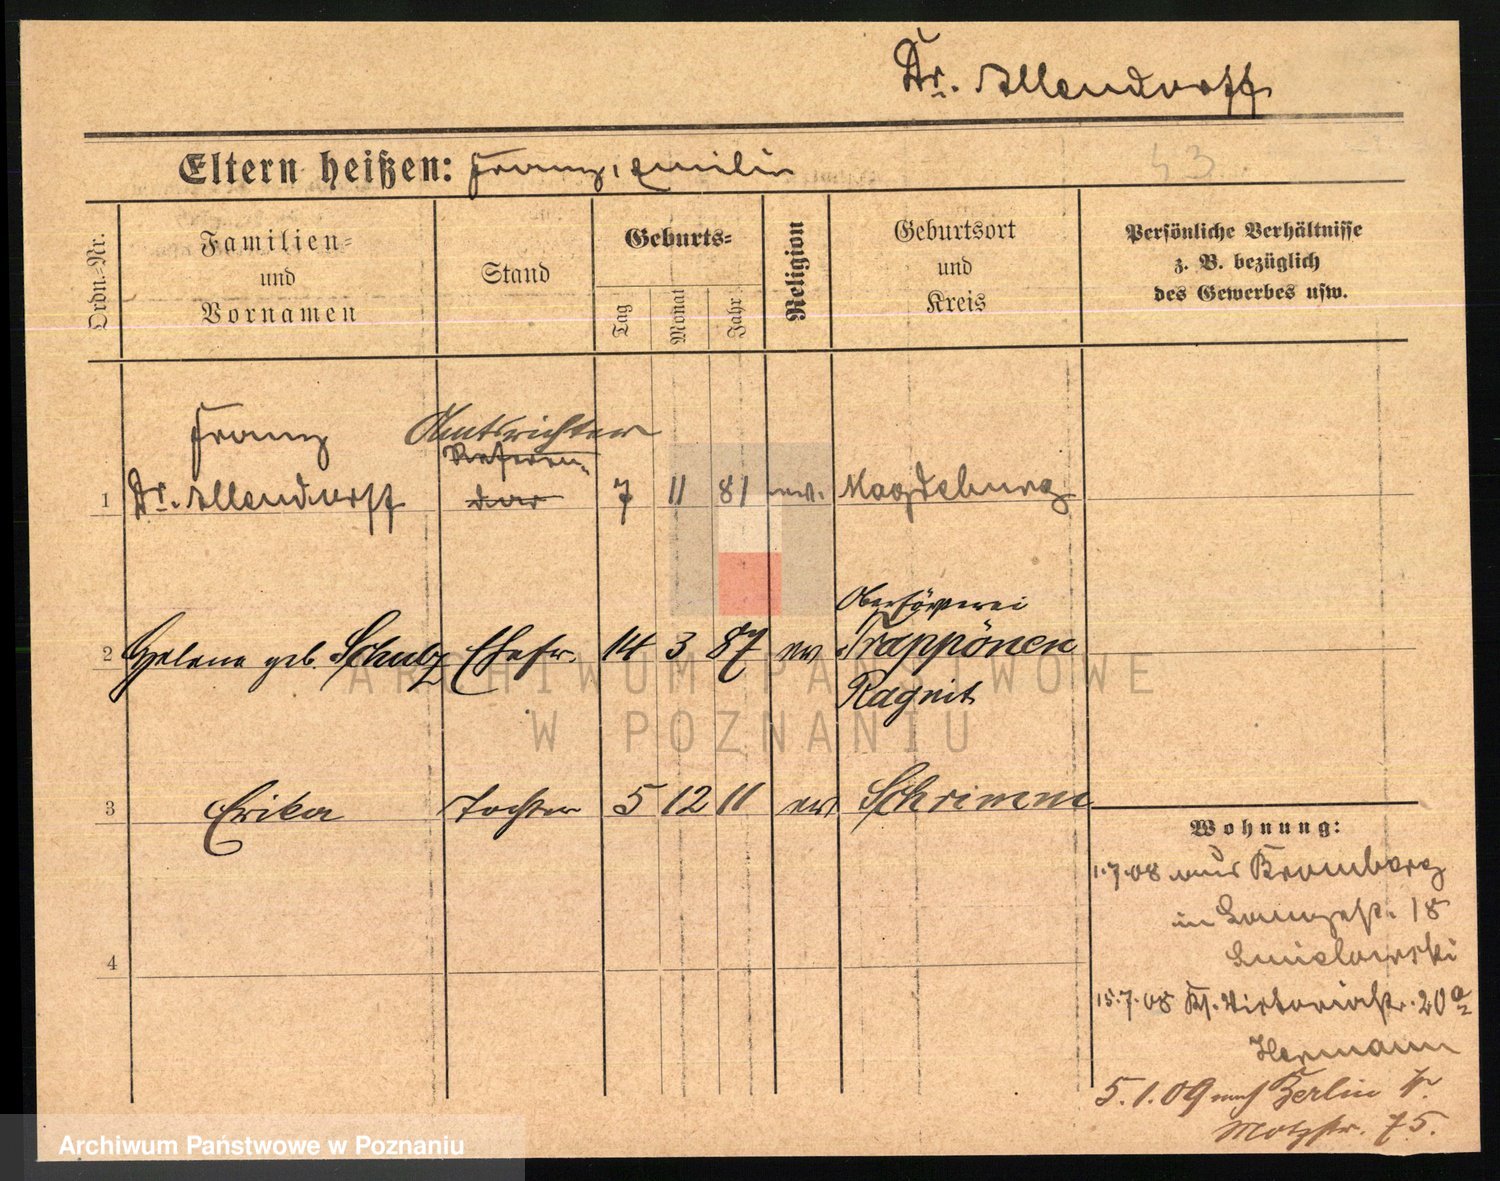 Dr. Allendorff
Eltern heißen: Franz, Emilie
43.
Ordn.-Nr.
Familien-
und
Vornamen
Stand
Geburts-
Tag
Monat
Jahr
Religion
Geburtsort
und
Kreis
Persönliche Verhältnisse
z. B. bezüglich
des Gewerbes usw.
Franz Amtsrichter
Referen-
1 Dr. Allendorff dar 7 11 81 ev. Magdeburg
Oberförsterei
2 Helene geb. Schulz Ehefr. 14 3 87 ev Trappönen
Ragnit
3 Erika Tochter 5 12 11 ev Schrimm
4
Wohnung:
1.7.08 aus Bromberg
in Langestr. 18
15.7.08 Kl. Victoriastr. 20a
Hermann
5.1.09 nach Berlin
Motzstr. 75.
ARCHIWUM PAŃSTWOWE
W POZNANIU
Archiwum Państwowe w Poznaniu